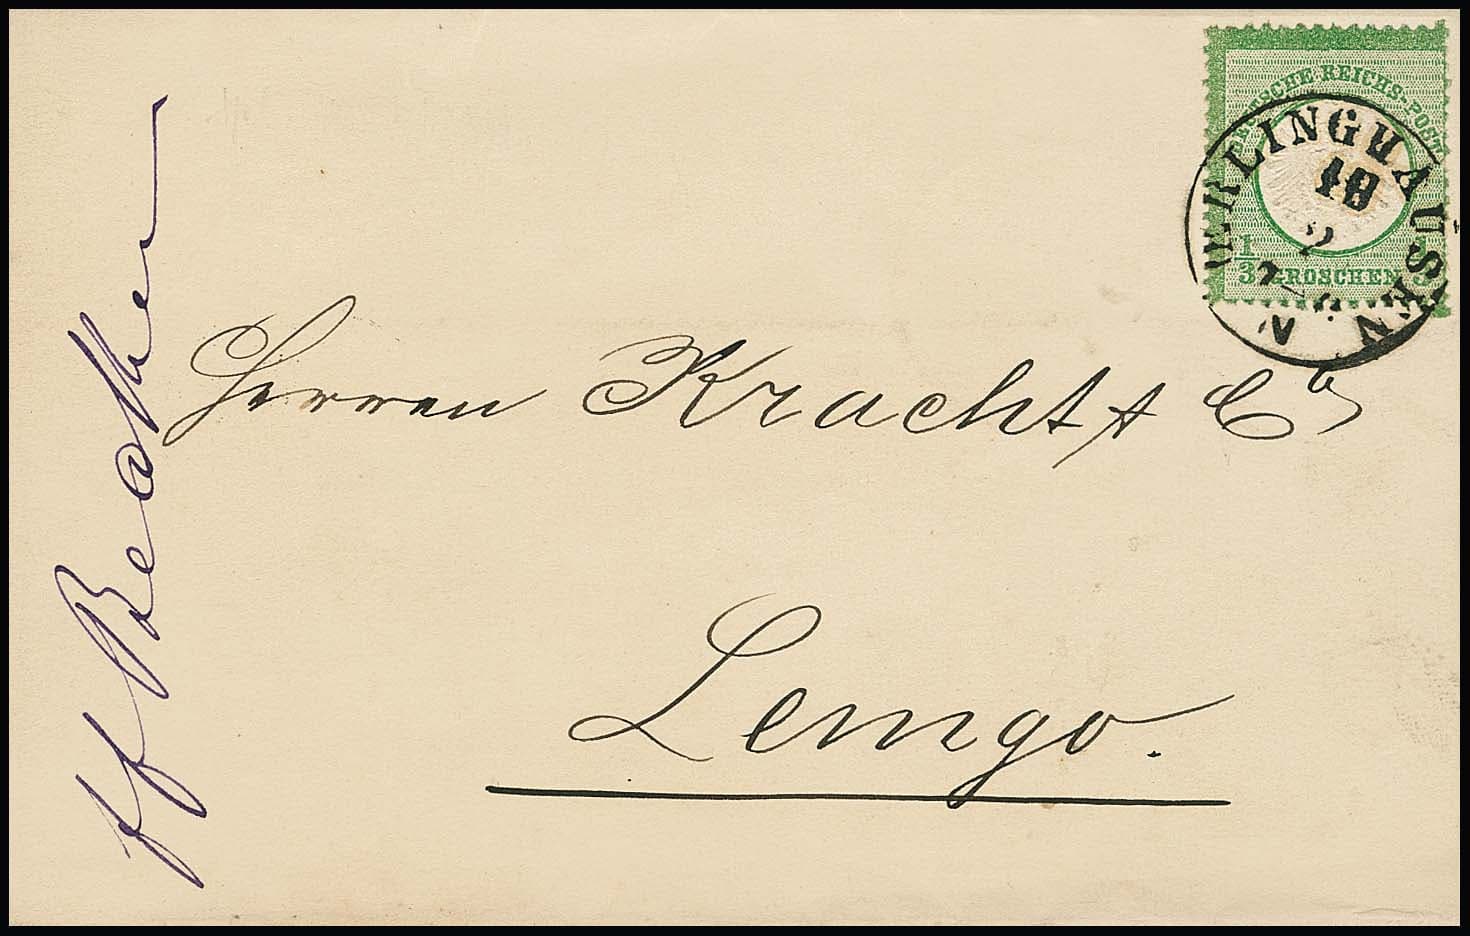 DEUTSCHE REICHS-POST
1/3 GROSCHEN 1/3
OERLINGHAUSEN
18
2
Herrn Kracht & Co
Lemgo.